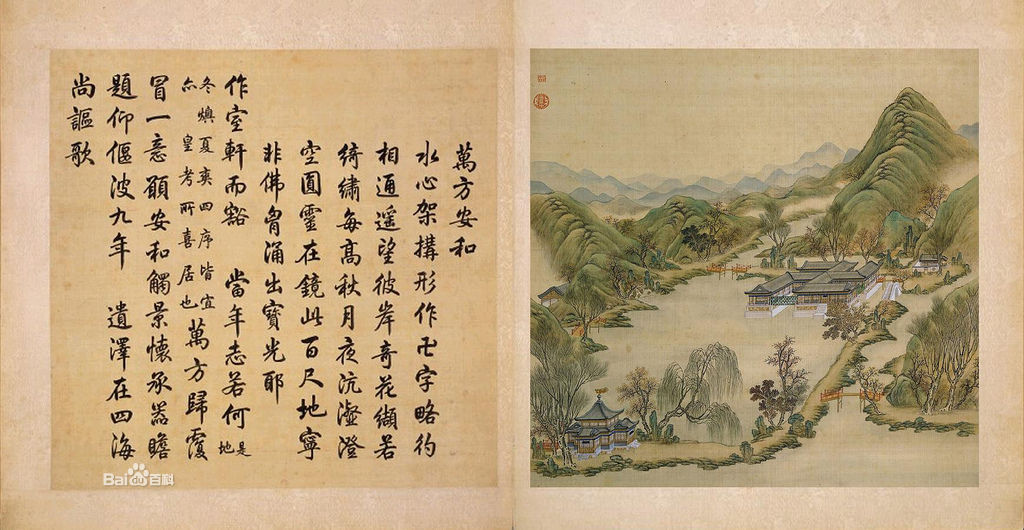 萬方安和
水心架搆形作卍字略約
相通遥望彼岸奇花纈若
綺繡每髙秋月夜沆瀣澄
空圓靈在鏡此百尺地寧
非佛胷涌出寶光耶
作室軒而豁 當年志若何 是地
冬燠夏爽四序皆宜亦皇考所喜居也 萬方歸覆
冒一意願安和觸景懷承器瞻
題仰偃波九年 遺澤在四海
尚謳歌
Baidu百科